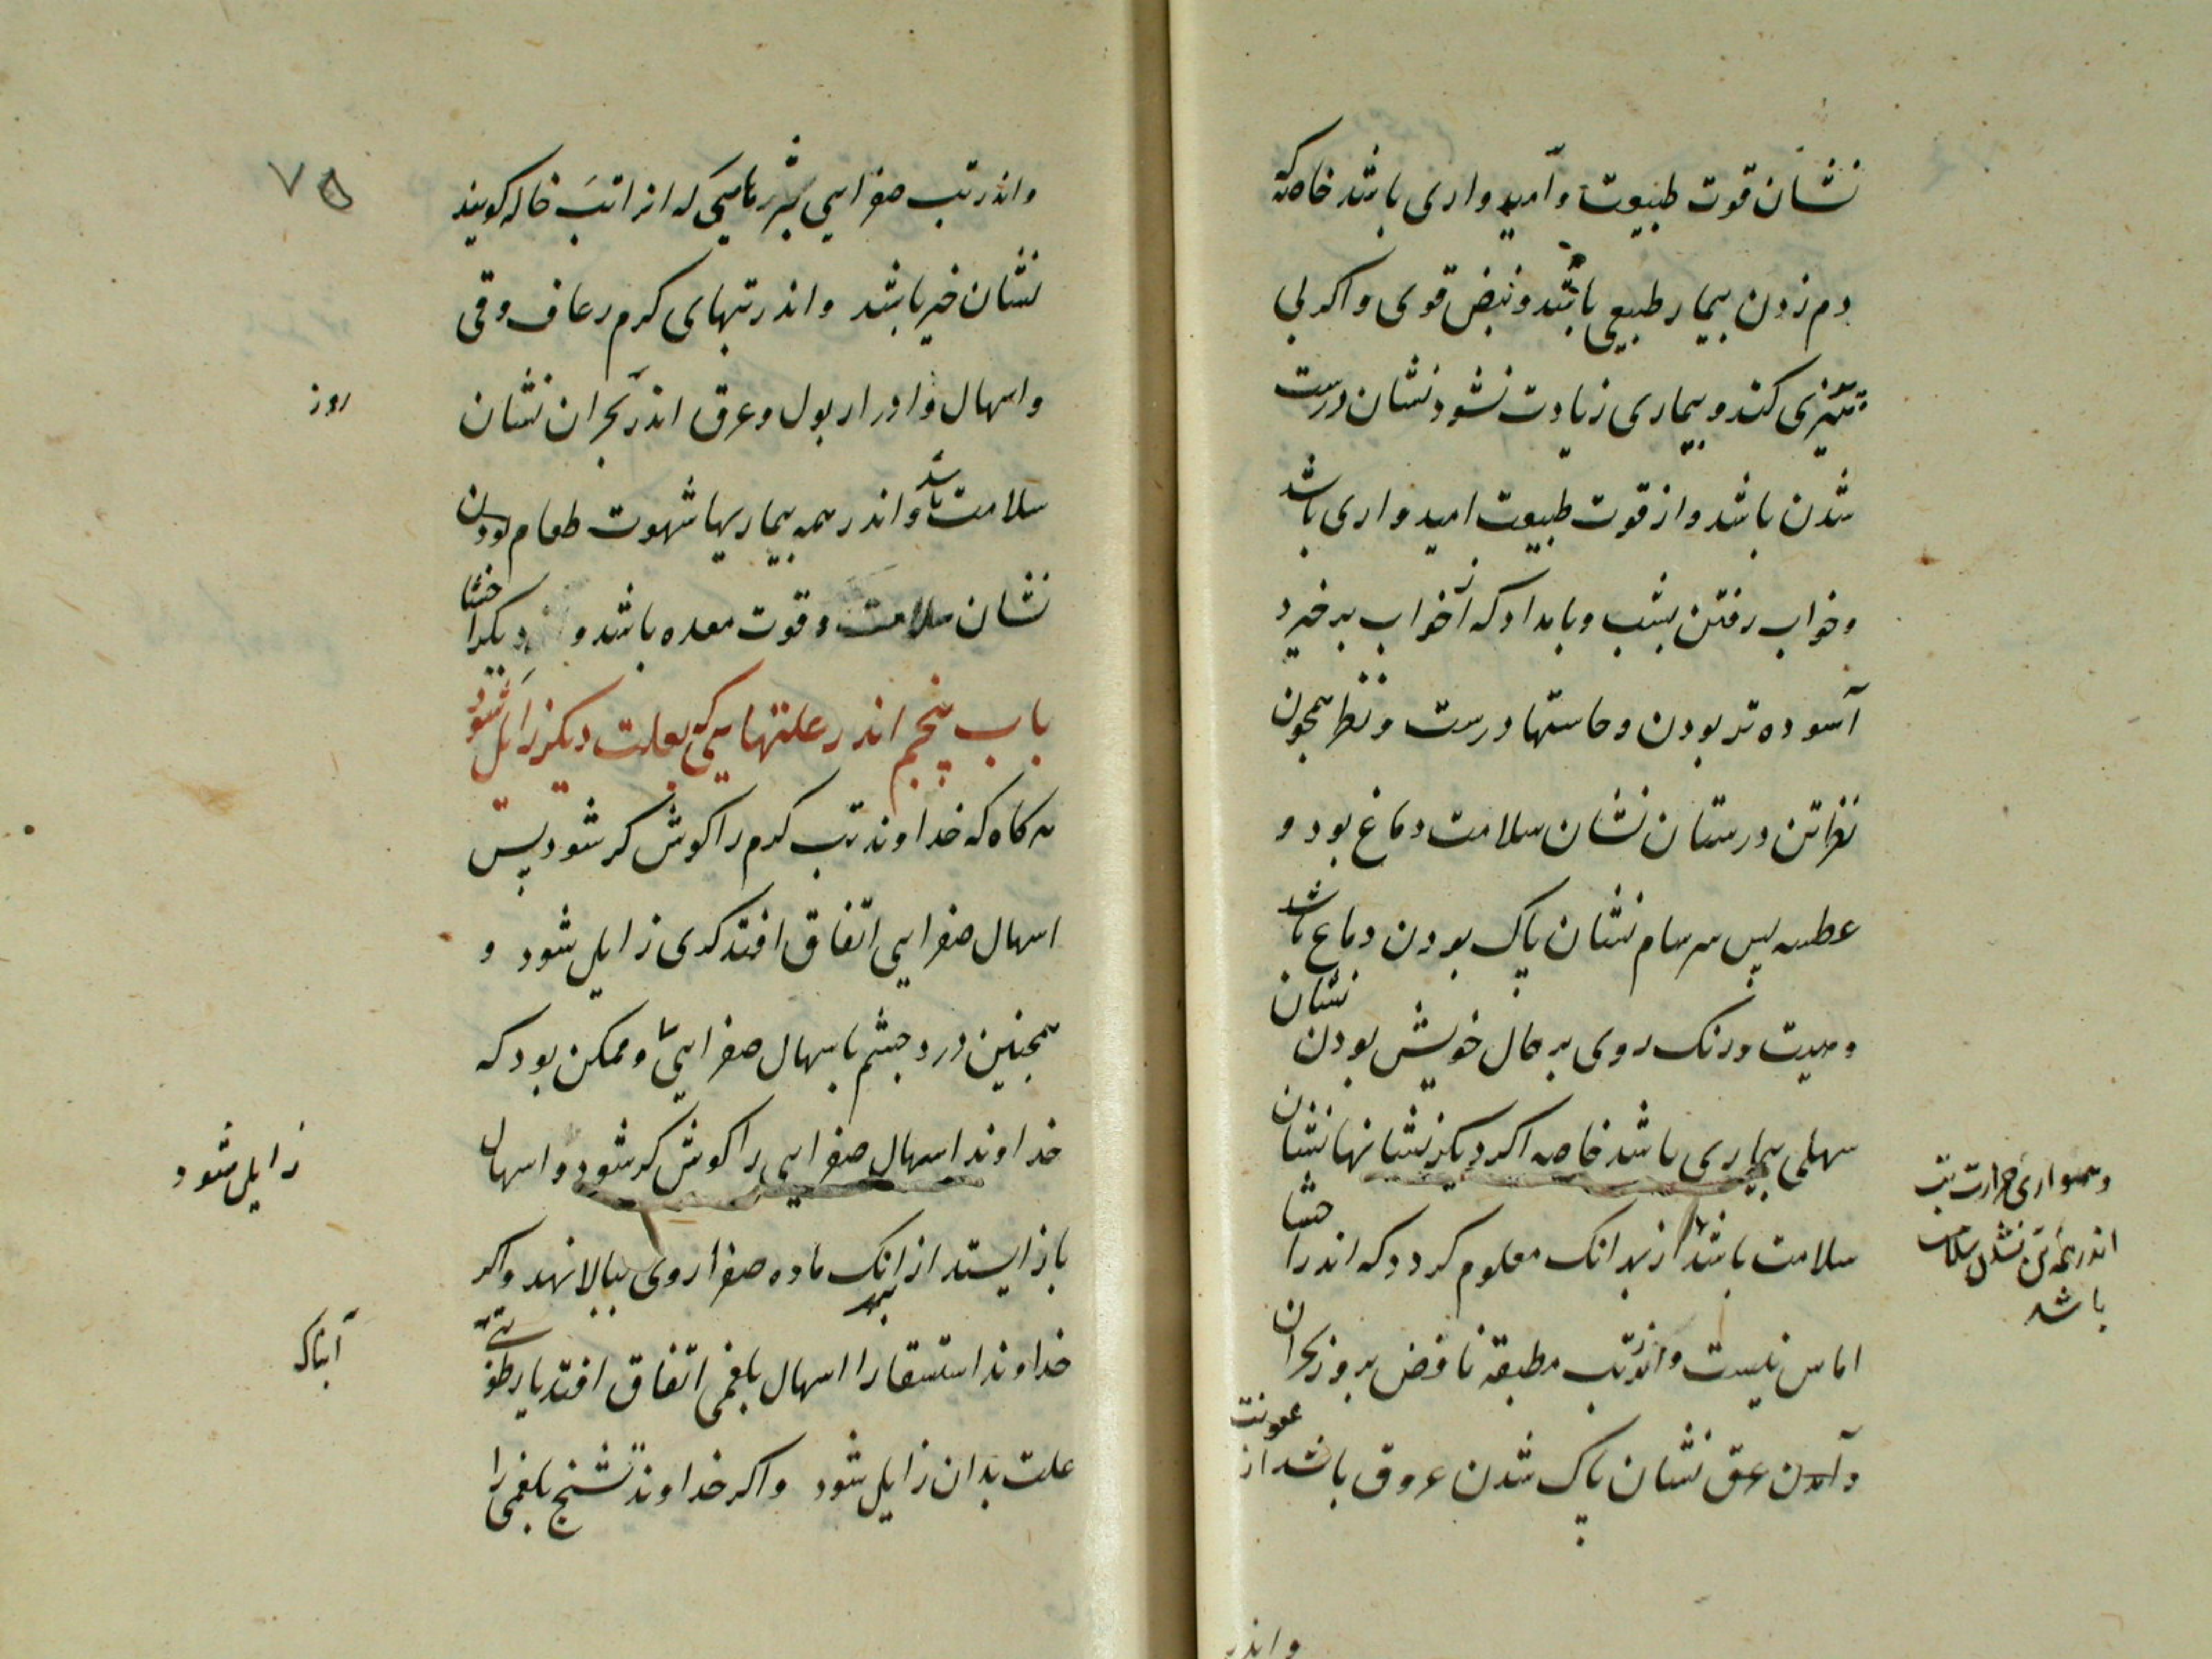 نشان قوت طبیعت و امیدواری باشد خاصه که
دم زدن بیمار طبیعی باشد و نبض قوی و اکر لی
تیزی کند و بیماری زیادت نشود نشان درست
شدن باشد و از قوت طبیعت امیدواری باشد
و خواب رفتن بشب و بامداد که از خواب برخیزد
آسوده تر بودن و حاستها درست و نظر همجون
نظر تن درستان نشان سلامت دماغ بود و
عطسه پس سرسام نشان پاک بودن دماغ باشد
و هییت و رنک روی بر حال خویش بودن نشان
سهلی بیماری باشد خاصه اکر دیکر نشانها نشان
سلامت باشد از بهر انک معلوم کردد که اندر احشا
اماس نیست و اندر تب مطبقه نافض بروز بحران
و آمدن عرق نشان پاک شدن عروق باشد از عفونت
و همواری حرارت تب
اندر همه تن نشان سلامت
باشد
و اندر
۷۵
و اندر تب صفرایی بثرهایی که انرا تب خاله کویند
نشان خیر باشد و اندر تبهای کرم رعاف و قی
و اسهال و ادرار بول و عرق اندر بحران نشان
روز
سلامت باشد و اندر همه بیماریها شهوت طعام بودن
نشان سلامت و قوت معده باشد و دیکر احشا
باب پنجم اندر علتهایی که بعلت دیکر زایل شود
هرکاه که خداوند تب کرم را کوش کر شود پس
اسهال صفرایی اتفاق افتد کری زایل شود و
همجنین درد جشم باسهال صفرایی و ممکن بود که
زایل شود
خداوند اسهال صفرایی را کوش کر شود و اسهال
باز ایستد از انک ماده صفرا روی ببالا نهد و اکر
خداوند استسقا را اسهال بلغمی اتفاق افتد یا رطوبتی
آبناک
علت بدان زایل شود و اکر خداوند تشنج بلغمی را